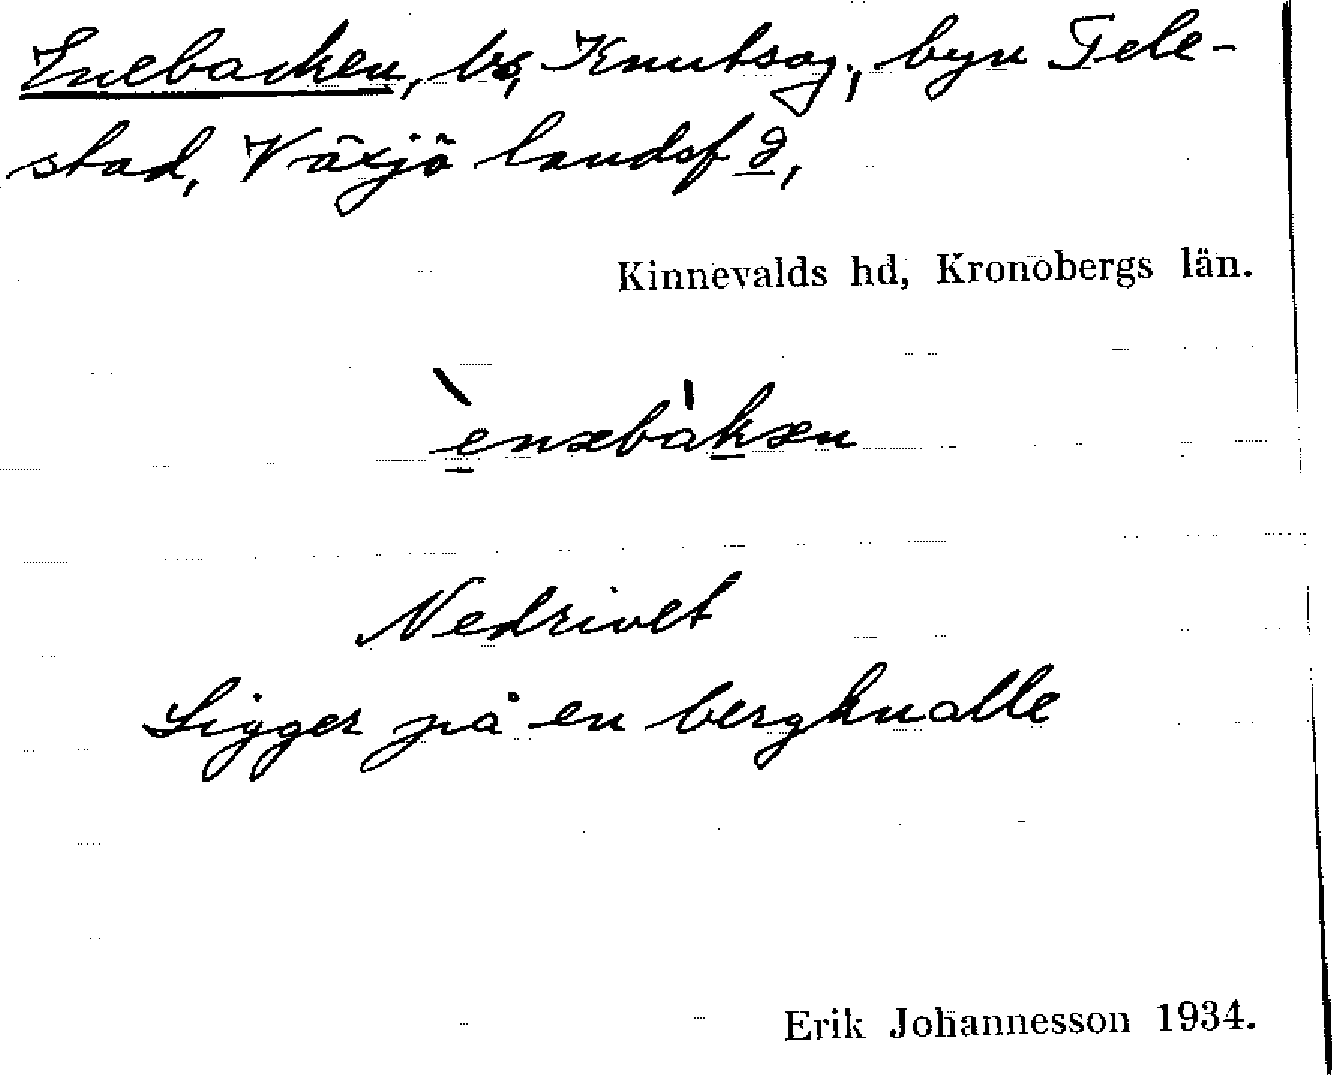 Enebacken, bs, Knutsag., byn Tele-
stad, Växjö landsf d,
Kinnevalds hd, Kronobergs län.
ènæbàkæn
Nedrivet
Ligger på en bergknalle
Erik Johannesson 1934.